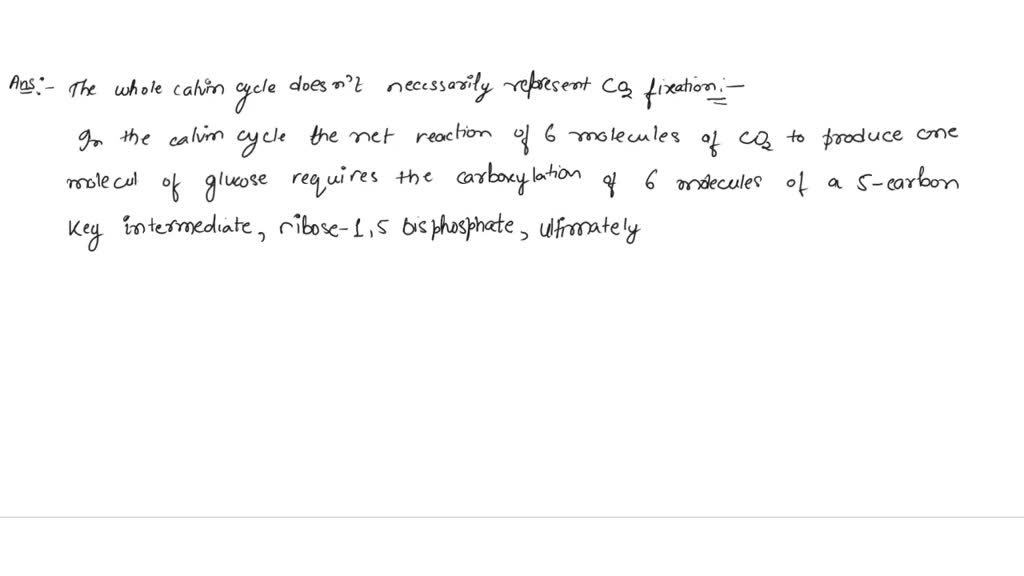 Ans:- The whole calvin cycle does n't necessarily represent CO2 fixation:-
In the calvin cycle the net reaction of 6 molecules of CO2 to produce one
molecul of glucose requires the carboxylation of 6 molecules of a 5-carbon
Key intermediate, ribose-1,5 bisphosphate, ultimately